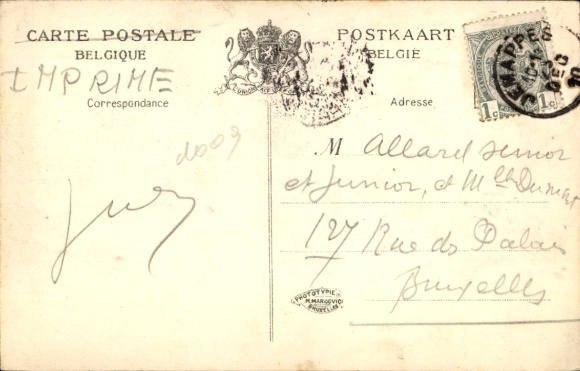 CARTE POSTALE
BELGIQUE
IMPRIME
Correspondance
POSTKAART
BELGIË
Adresse
JEMAPPES
DEC
10
1c 1c
M Allard senior
et junior, et Mlle Dumont
127 Rue du Palais
Bruxelles
PHOTOTYPIE
M. MARCOVICI
BRUXELLES